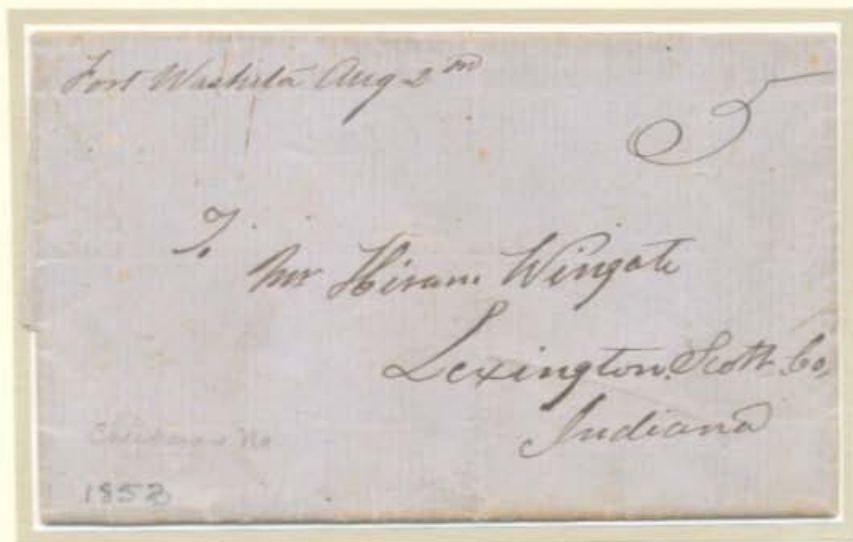 Fort Washita Aug 2nd
5
To
Mr Hiram Wingate
Lexington Scott Co,
Indiana
1852